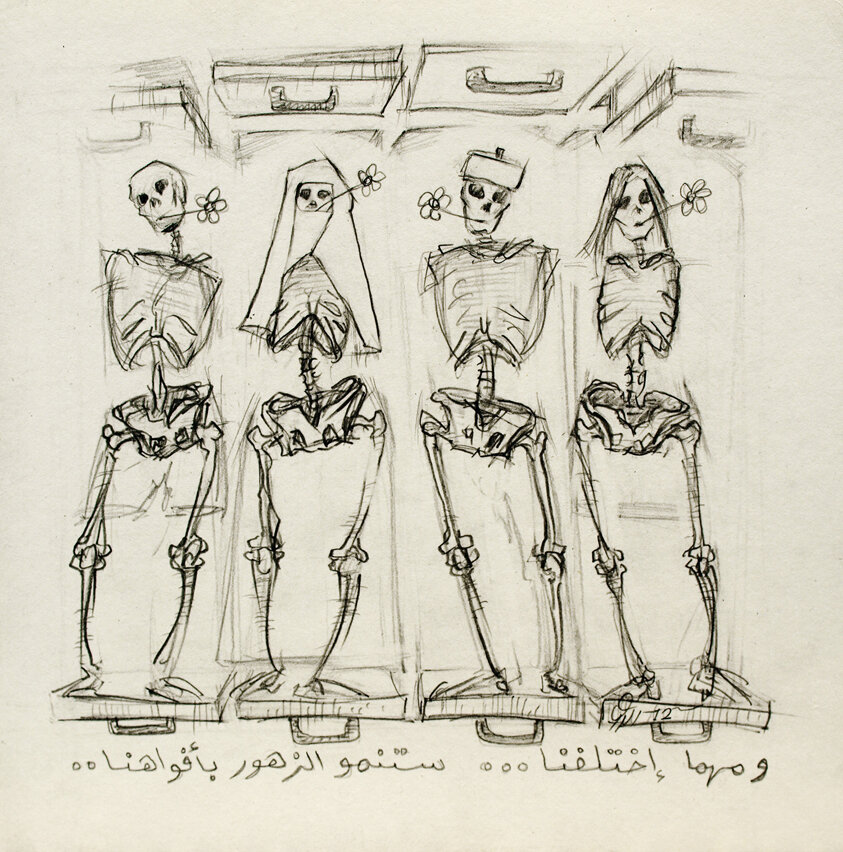 ومهما إختلفنا ... ستنمو الزهور بأفواهنا..
12